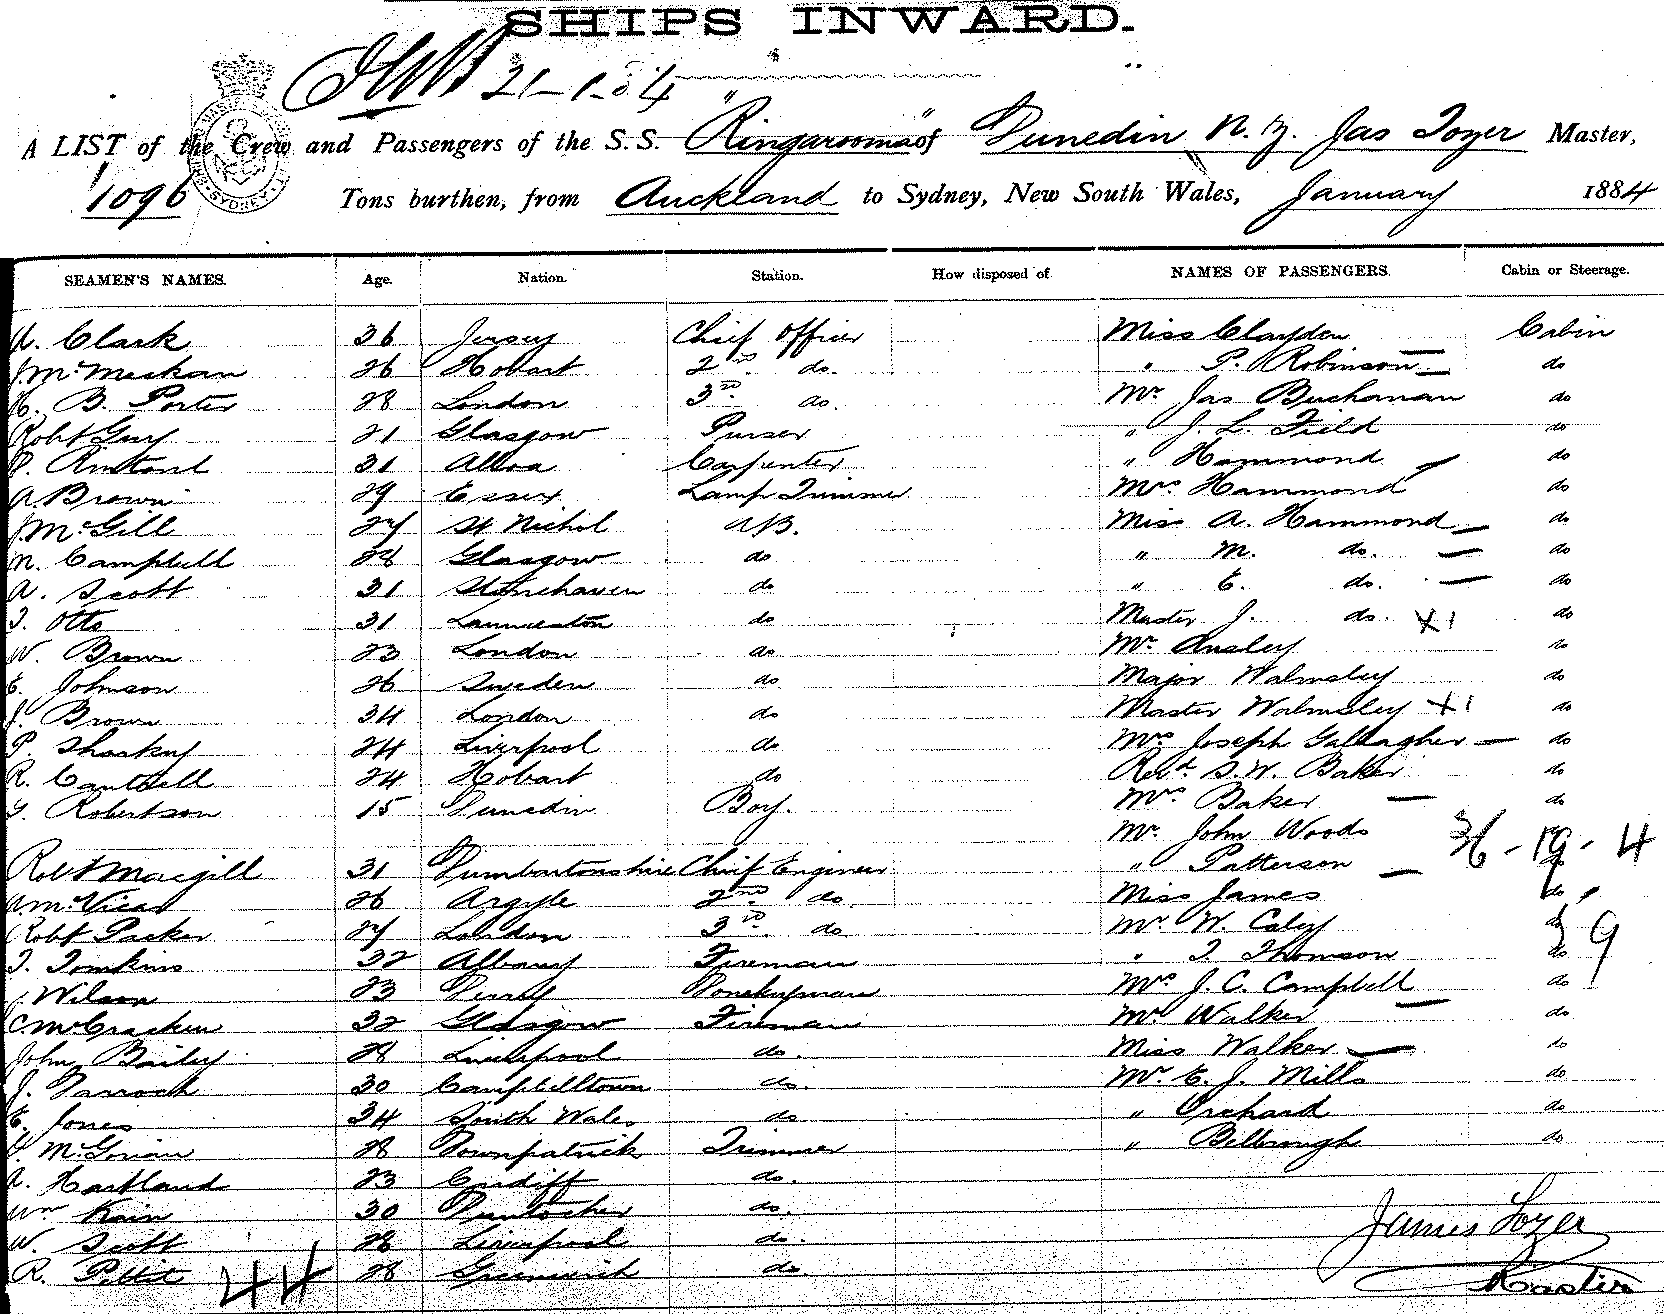 SHIPS INWARD.
21-1-84
A LIST of the Crew and Passengers of the S.S. "Ringarooma" of Dunedin N.Z. Jas Tozer Master,
1096 Tons burthen, from Auckland to Sydney, New South Wales, January 1884
SEAMEN'S NAMES. Age. Nation. Station. How disposed of. NAMES OF PASSENGERS. Cabin or Steerage.
A. Clark 36 Jersey Chief Officer Miss Clayden Cabin
26 Hobart 2nd do. " P. Robinson do
H. B. Porter 28 London 3rd do. Mr Jas Buchanan do
Robt Guy 21 Glasgow Purser " J. L. Field do
31 Alloa Carpenter " Hammond do
A. Brown 29 Essex Lamp Trimmer Mrs Hammond do
J. McGill 27 St Nichol A.B. Miss A. Hammond do
N. Campbell 28 Glasgow do " M. do. do
A. Scott 31 Stonehaven do " E. do. do
T. Otto 31 Launceston do Master J. do. X1 do
W. Brown 23 London do Mr Ansley do
E. Johnson 26 Sweden do Major Walmsley do
J. Brown 34 London do Master Walmsley X1 do
P. Sharkey 24 Liverpool do Mrs Joseph Gallagher do
R. Cantbell 24 Hobart do Revd S. W. Baker do
G. Robertson 15 Dunedin Boy. Mrs Baker do
Mr. John Woods 36-19-4
Robt Macgill 31 Dumbartonshire Chief Engineer " Patterson
A McVicar 26 Argyle 2nd do. Miss James do
Robt Parker 27 London 3rd do Mr W. Caley do 9
T. Tomkins 32 Albany Fireman " T. Thomson do
Wilson 23 Donkeyman Mrs J. C. Campbell do
C McCracken 32 Glasgow Fireman Mr Walker do
John Bailey 28 Liverpool do. Miss Walker do
J. Darroch 30 Campbelltown do. Mr. E. J. Mills do
E. Jones 34 South Wales do " Orchard do
28 Downpatrick Trimmer " Belbrough do
A. Hartland 23 Cardiff do.
Wm Kain 30 do.
James Tozer
W. Scott 28 Liverpool do.
R. 44 28 Greenwich do. Master